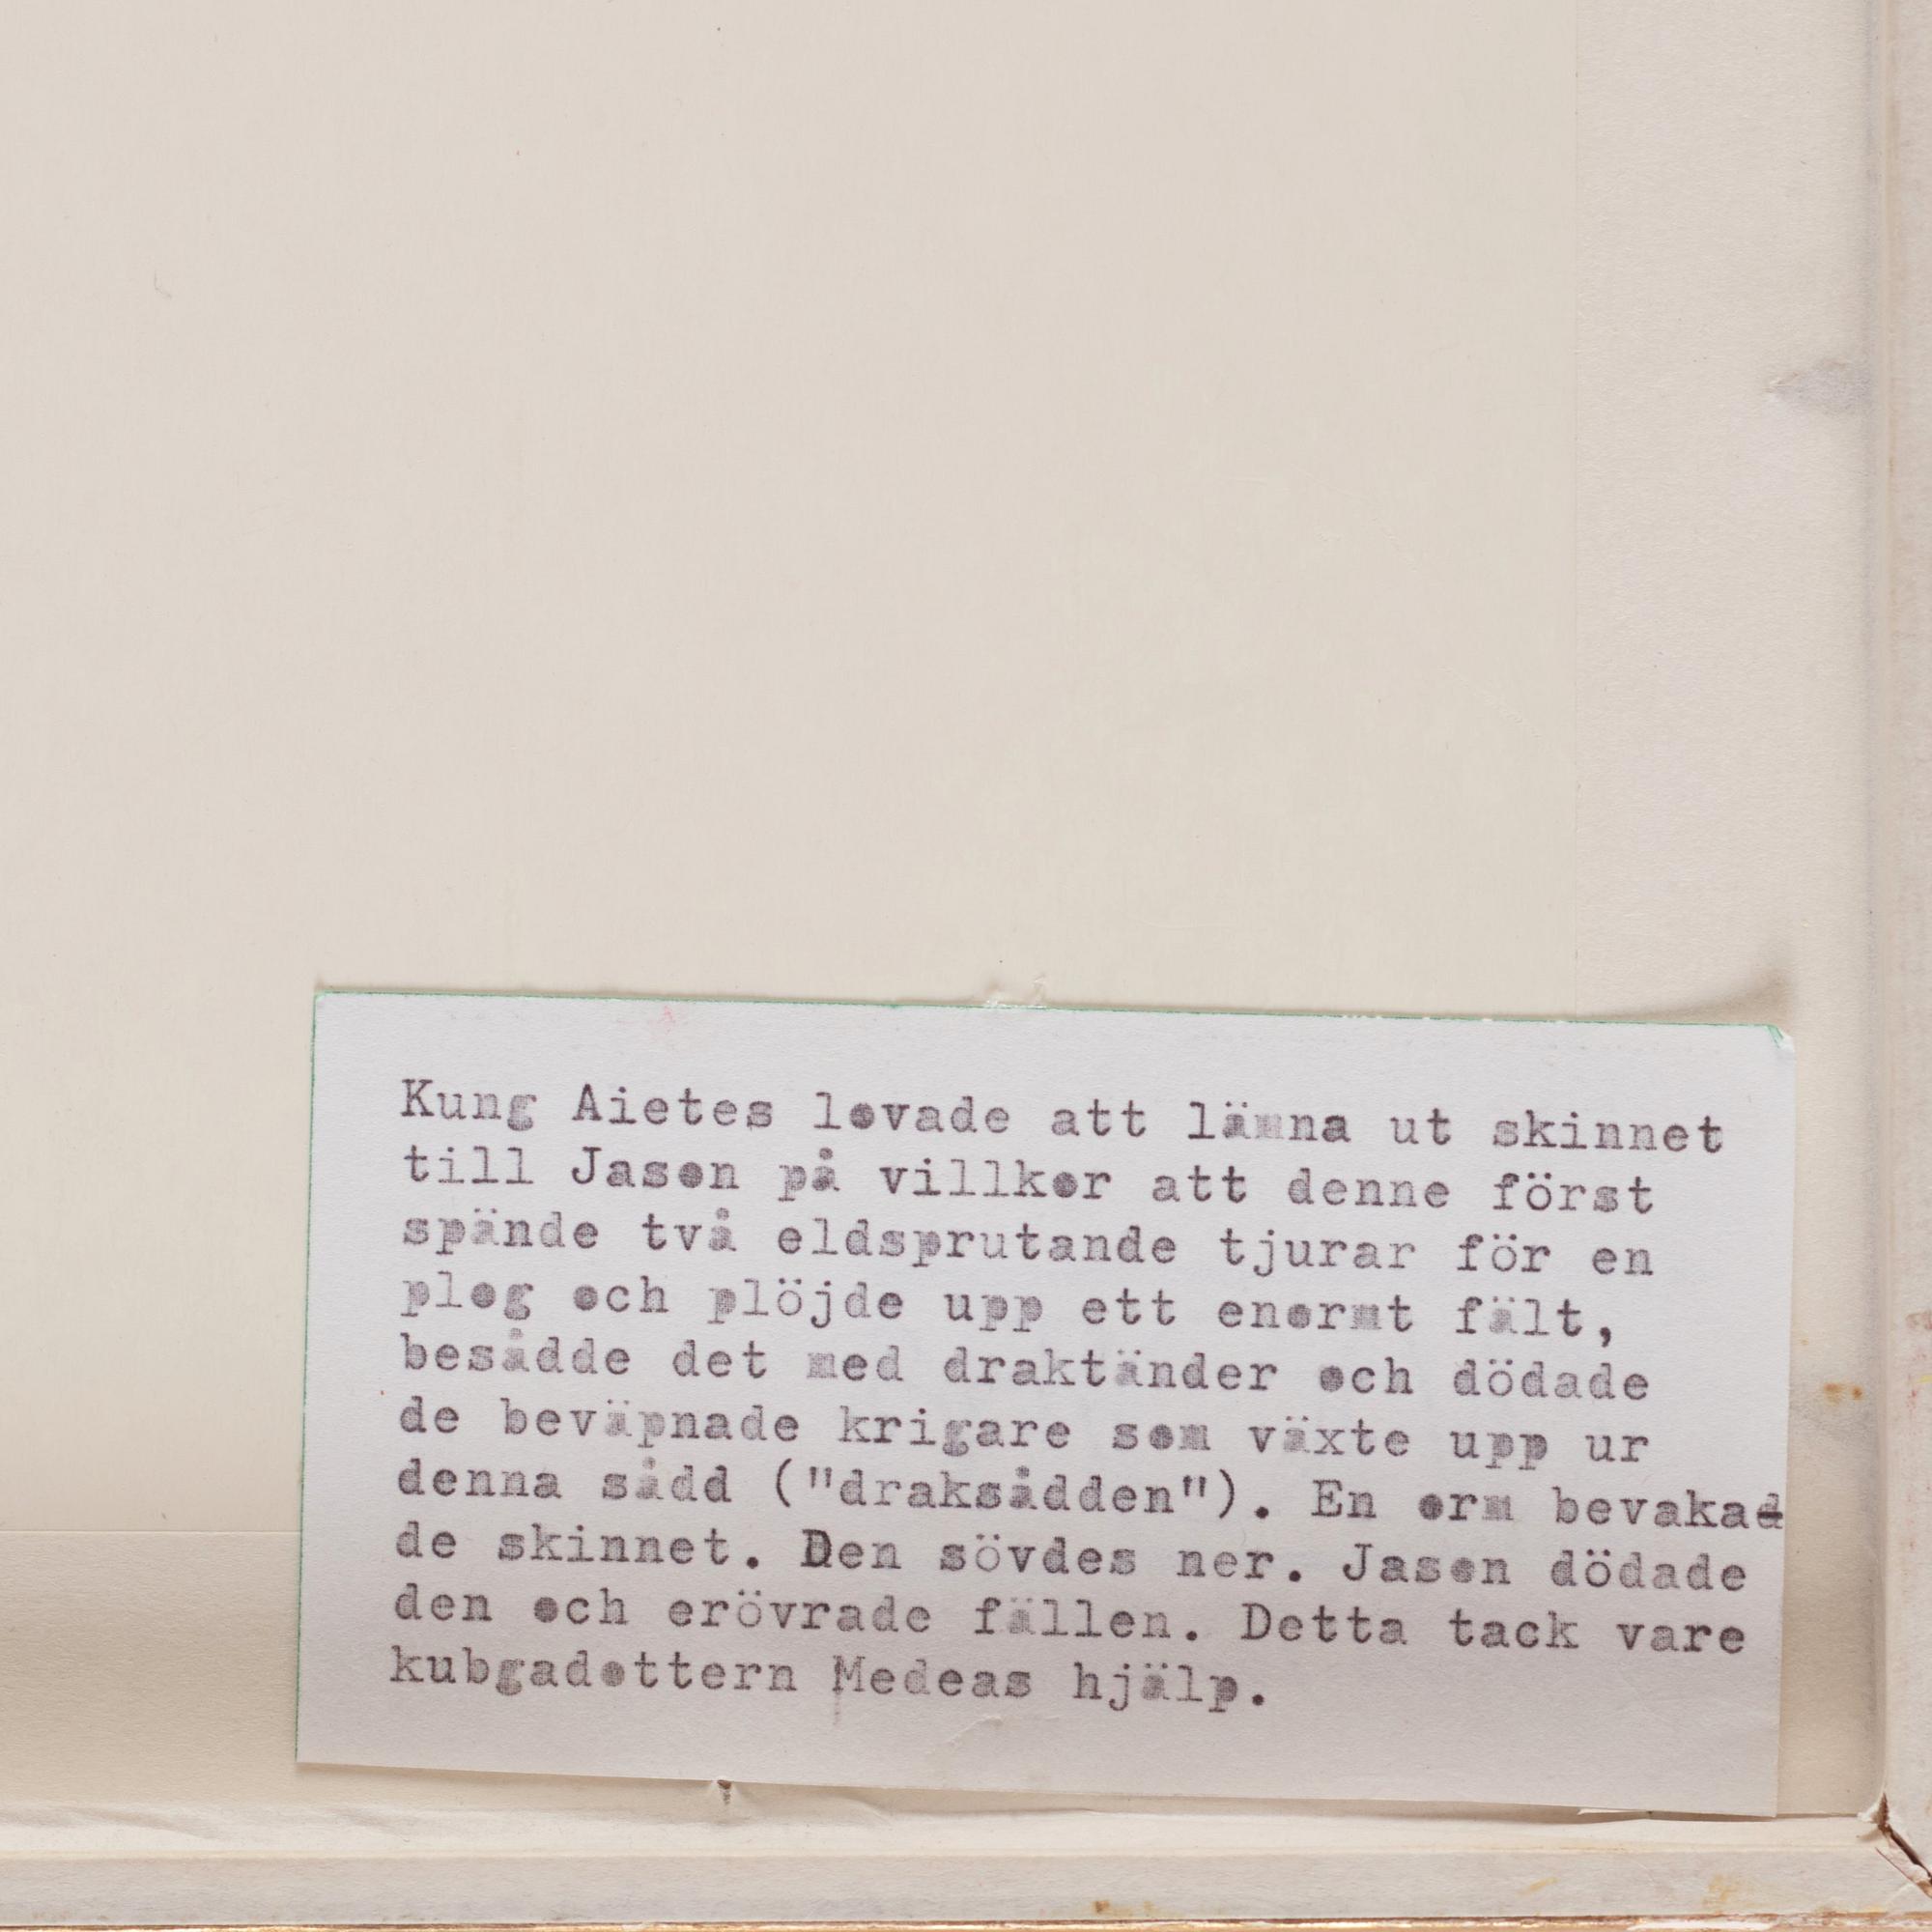 Kung Aietes lovade att lämna ut skinnet
till Jason på villkor att denne först
spände två eldsprutande tjurar för en
plog och plöjde upp ett enormt fält,
besådde det med draktänder och dödade
de beväpnade krigare som växte upp ur
denna sådd ("draksådden"). En orm bevakad
de skinnet. Den sövdes ner. Jason dödade
den och erövrade fällen. Detta tack vare
kubgadottern Medeas hjälp.